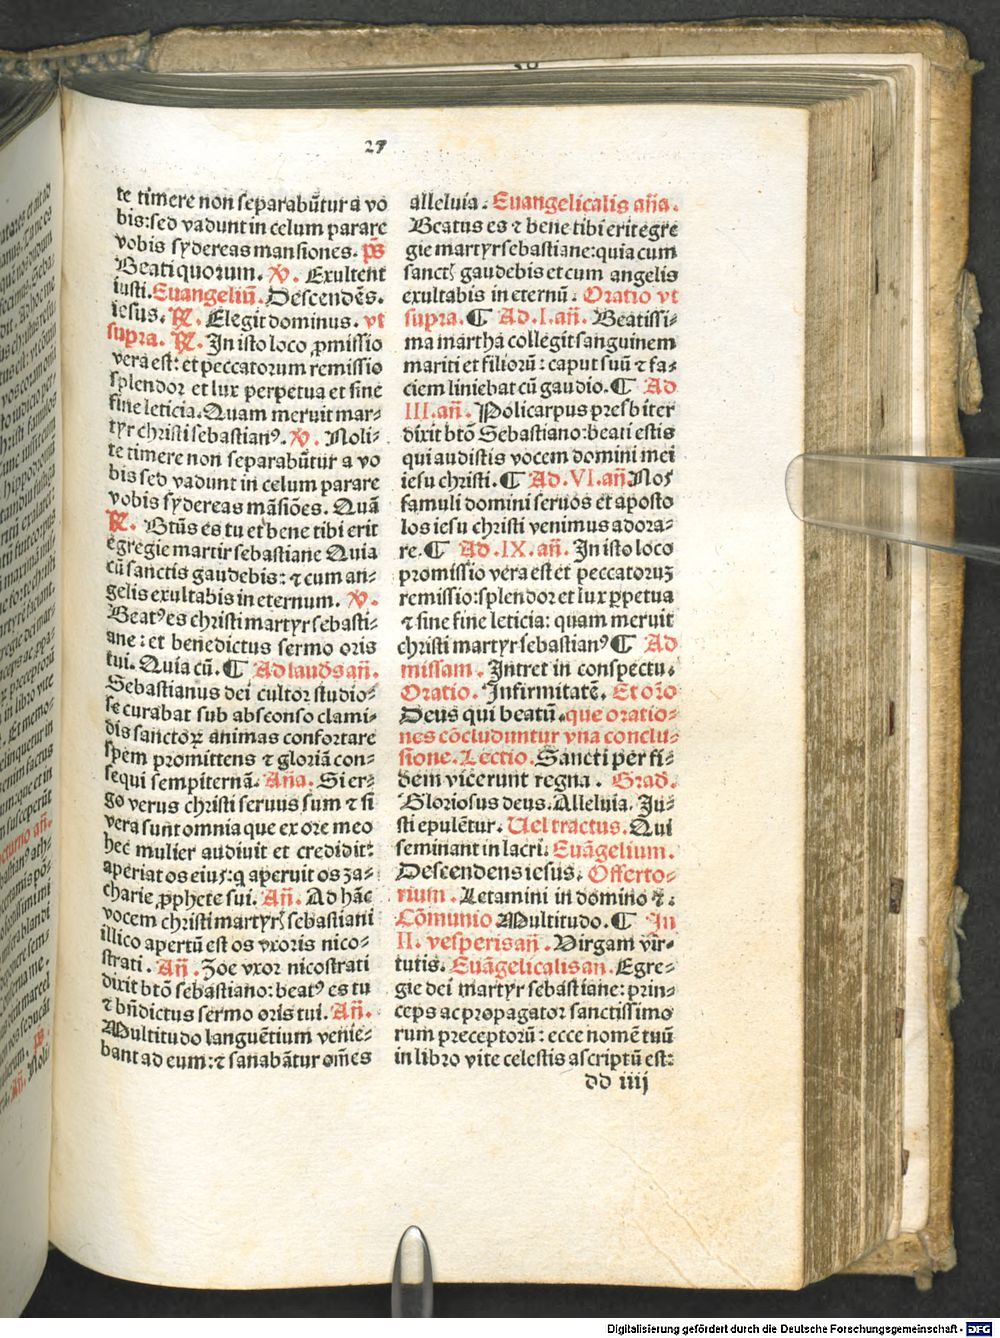 27
te timere non separabūtur a vo
bis:sed vadunt in celum parare
vobis sydereas mansiones. ps̄
Beati quorum. ℣. Exultent
iusti. Euangeliū. Descendēs.
iesus. ℟. Elegit dominus. vt
supra. ℟. In isto loco ꝓmissio
vera est: et peccatorum remissio
splendor et lux perpetua et sine
fine leticia. Quam meruit mar-
tyr christi sebastianꝰ. ℣. Noli-
te timere non separabūtur a vo
bis sed vadunt in celum parare
vobis sydereas māsiōes. Quā
℟. Btūs es tu et bene tibi erit
egregie martir sebastiane Quia
cū sanctis gaudebis: ⁊ cum an-
gelis exultabis in eternum. ℣.
Beatꝰ es christi martyr sebasti-
ane: et benedictus sermo oris
tui. Quia cū. ¶ Ad laudes añ.
Sebastianus dei cultor studio-
se curabat sub absconso clami-
dis sanctoꝝ animas confortare
spem promittens ⁊ gloriā con-
sequi sempiternā. Aña. Si er-
go verus christi seruus sum ⁊ si
vera sunt omnia que ex ore meo
hec mulier audiuit et credidit:
aperiat os eius: q aperuit os za-
charie ꝓphete sui. Añ. Ad hāc
vocem christi martyris sebastiani
illico apertū est os vxoris nico-
strati. Añ. Zoe vxor nicostrati
dixit btō sebastiano: beatꝰ es tu
⁊ bñdictus sermo oris tui. Añ.
Multitudo languētium venie-
bant ad eum: ⁊ sanabātur om̄es
alleluia. Euangelicalis aña.
Beatus es ⁊ bene tibi erit egre
gie martyr sebastiane: quia cum
sanctis gaudebis et cum angelis
exultabis in eternū. Oratio vt
supra. ¶ Ad. I. añ. Beatissi-
ma martha collegit sanguinem
mariti et filiorū: caput suū ⁊ fa-
ciem liniebat cū gaudio. ¶ Ad
III. añ. Policarpus presbiter
dixit btō Sebastiano: beati estis
qui audistis vocem domini mei
iesu christi. ¶ Ad. VI. añ. Nos
famuli domini seruos et aposto
los iesu christi venimus adora-
re. ¶ Ad. IX. añ. In isto loco
promissio vera est et peccatoruꝫ
remissio: splendor et lux ꝑpetua
⁊ sine fine leticia: quam meruit
christi martyr sebastianꝰ ¶ Ad
missam. Intret in conspectu.
Oratio. Infirmitatē. Et orō
Deus qui beatū. que oratio-
nes cōcluduntur vna conclu-
sione. Lectio. Sancti per fi-
dem vicerunt regna. Grad.
Gloriosus deus. Alleluia. Ju-
sti epulētur. Uel tractus. Qui
seminant in lacri. Euāgelium.
Descendens iesus. Offerto-
rium. Letamini in domino ⁊.
Cōmunio Multitudo. ¶ In
II. vesperis añ. Virgam vir-
tutis. Euāgelicalis an. Egre-
gie dei martyr sebastiane: prin-
ceps ac propagator sanctissimo
rum preceptorū: ecce nomē tuū
in libro vite celestis ascriptū est:
dd iiij
Digitalisierung gefördert durch die Deutsche Forschungsgemeinschaft - DFG